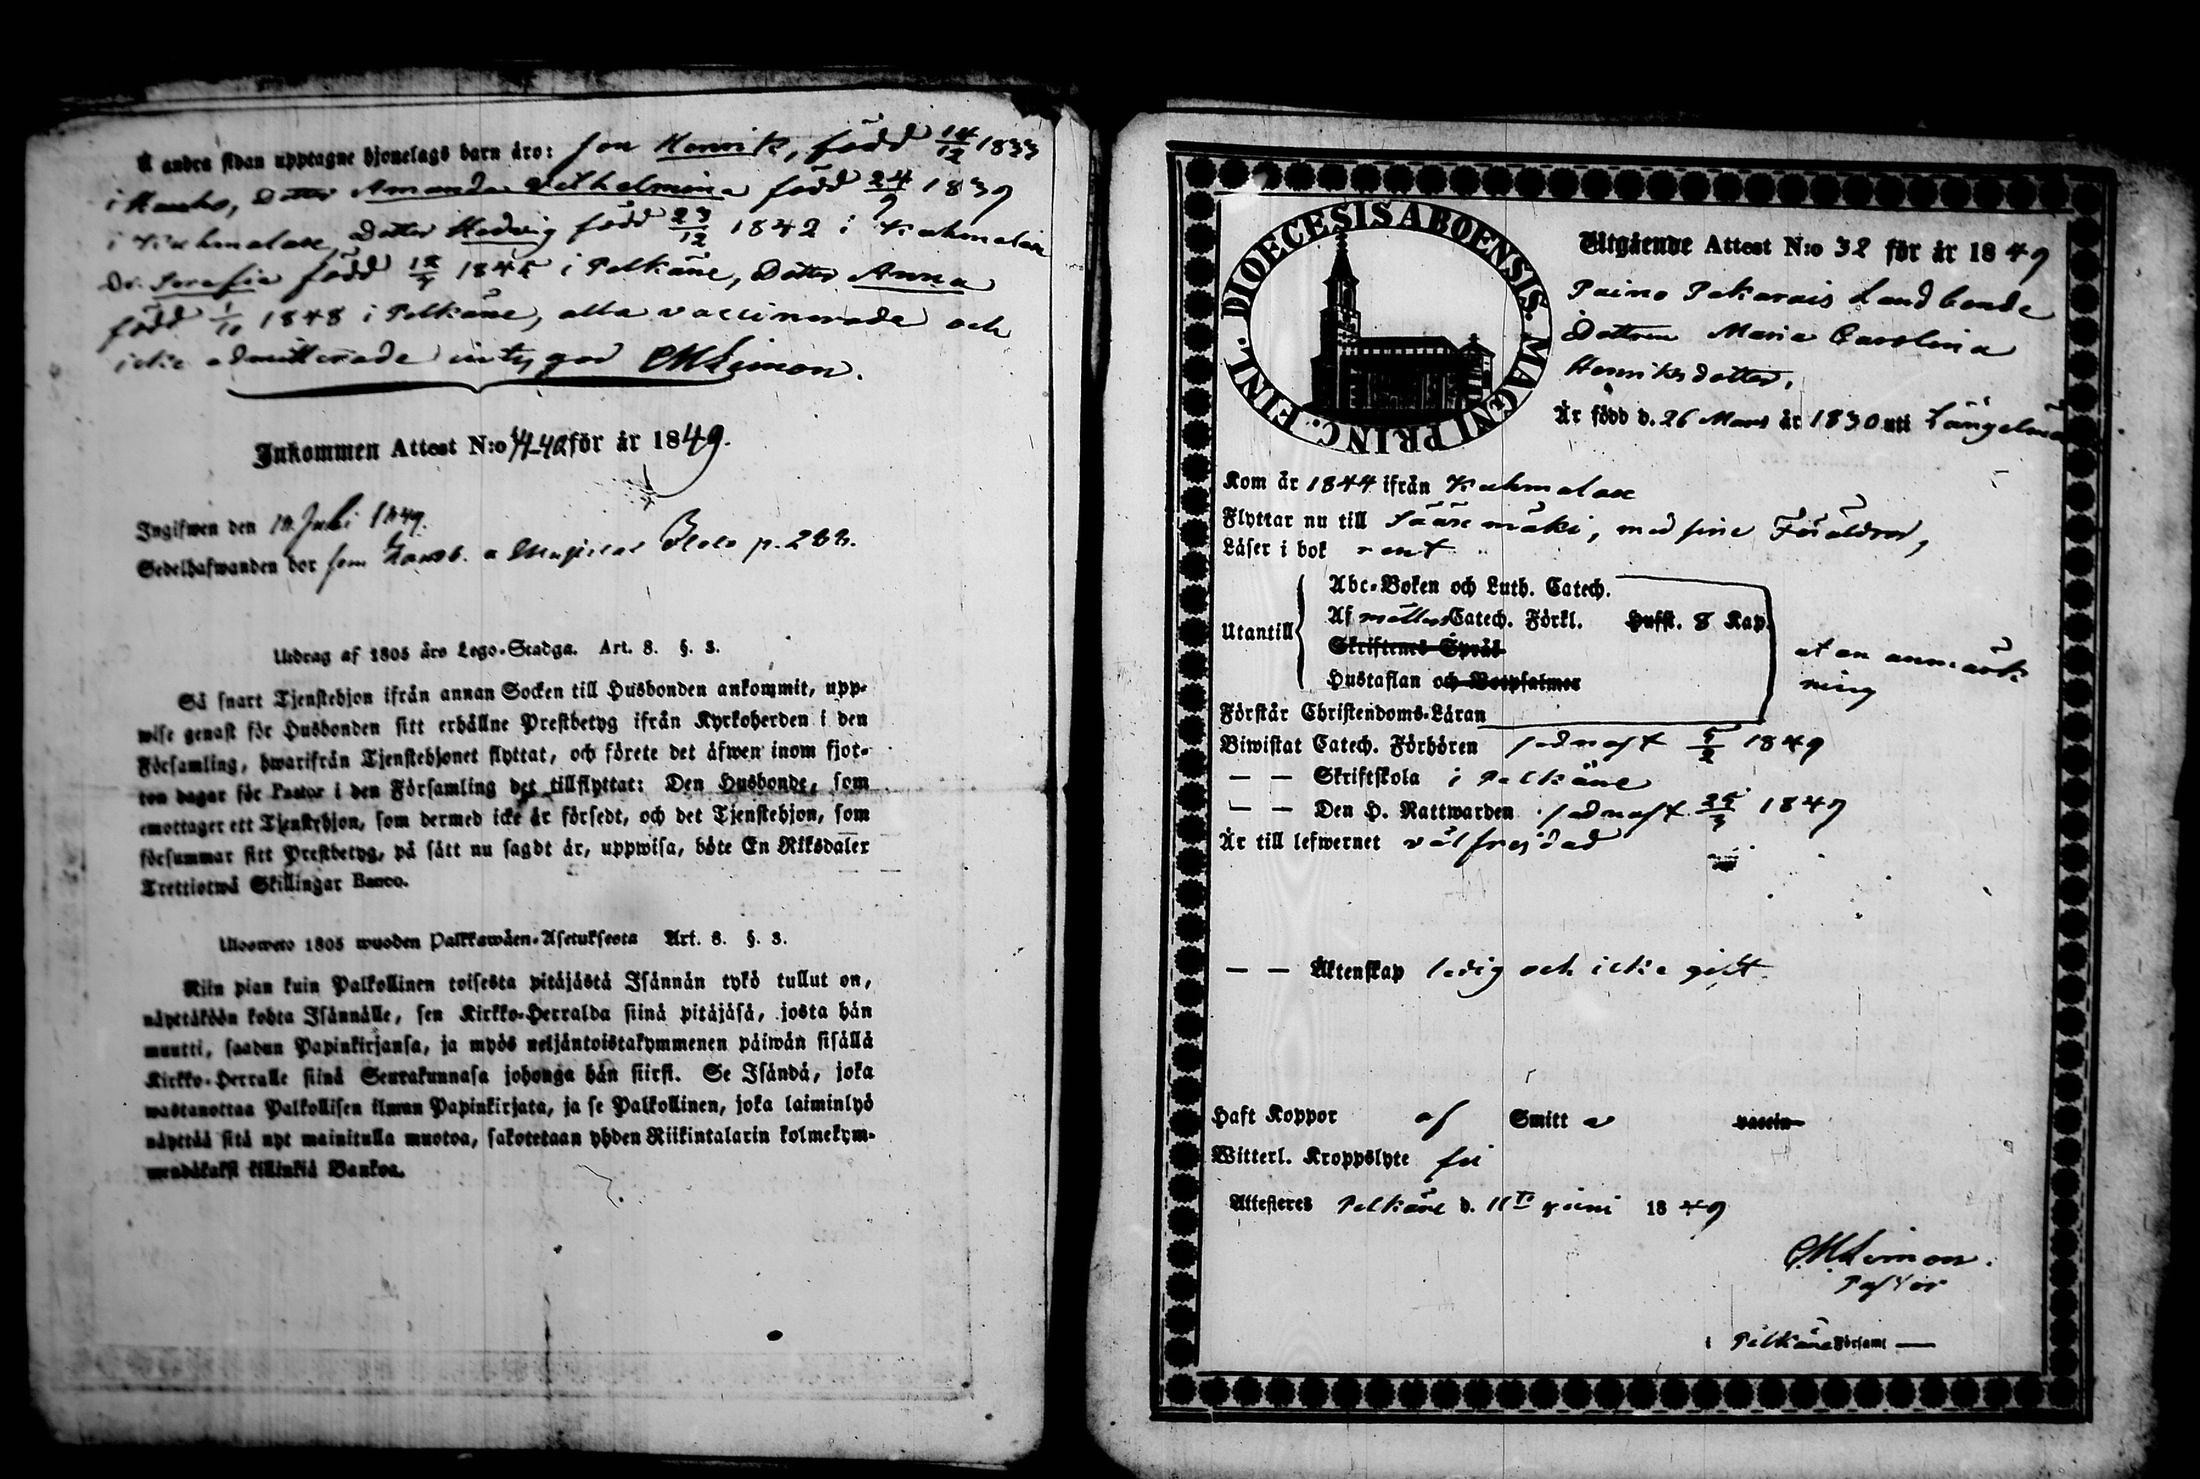 Å andra sidan upptagne hjonelags barn äro: Son Henrik, född 14/12 1833
i, Dotter Amanda Wilhelmina född 24/9 1839
i Kuhmalax, Dotter Hedvig född 23/12 1842 i Kuhmalax
Dr. Serafia född 1845 i Pelkäne, Dotter Anna
född 1/10 1848 i Pelkäne, alla vaccinerade och
icke admitterade intygar Simon.
Inkommen Attest N:o för år 1849.
Ingifwen den Juli 1849.
Sedelhafwanden bor som a p.
Utdrag af 1805 års Lego-Stadga. Art. 8. §. 3.
Så snart Tjenstehjon ifrån annan Socken till Husbonden ankommit, upp-
wise genast för Husbonden sitt erhållne Prestbetyg ifrån Kyrkoherden i den
Församling, hwarifrån Tjenstehjonet flyttat, och förete det äfwen inom fjor-
ton dagar för Pastor i den Församling det tillflyttat: Den Husbonde, som
emottager ett Tjenstehjon, som dermed icke är försedt, och det Tjenstehjon, som
försummar sitt Prestbetyg, på sätt nu sagdt är, uppwisa, böte En Riksdaler
Trettiotwå Skillingar Banco.
Uloswето 1805 wuoden Palkkawäen-Asetuksesta Art. 8. §. 3.
Niin pian kuin Palkollinen toisesta pitäjästä Isännän tykö tullut on,
näyttäköön kohta Isännälle, sen Kirkko-Herralda siinä pitäjäsä, josta hän
muutti, saadun Papinkirjansa, ja myös neljäntoistakymmenen päiwän sisällä
Kirkko-Herralle siinä Seurakunnasa johonga hän siirsi. Se Isändä, joka
wastanottaa Palkollisen ilman Papinkirjata, ja se Palkollinen, joka laiminlyö
näyttää sitä nyt mainitulla muotoa, sakotetaan yhden Riikintalarin kolmekym-
mendäkaksi killinkiä Bankoa.
DIOECESIS ABOENSIS. MAGNI PRINC. FINL.
Utgående Attest N:o 32 för år 1849
Paino Pekarais Landbonde
Dottren Maria Carolina
Henriksdotter,
Är född d. 26 Mars år 1830 uti Längelmä
Kom år 1844 ifrån Kuhmalax
Flyttar nu till Sääxmäki, med sine Föräldrar,
Läser i bok rent
Utantill
Abc-Boken och Luth. Catech.
Af Möllers Catech. Förkl. Hufst. 8 Kap.
Skriftenes Språk
Hustaflan och Botpsalmer
utan anmärk
ning
Förstår Christendoms-Läran
Biwistat Catech. Förhören sednast 5/2 1849
— — Skriftskola i Pelkäne
— — Den H. Nattwarden sednast 25/3 1849
Är till lefwernet välfrejdad
— — Äktenskap ledig och icke gift
Haft Koppor af Smitta vaccin
Witterl. Kroppslyte fri
Attesteres Pelkäne d. 11te Juni 1849
Simon.
Pastor
i Pelkäne Församl —